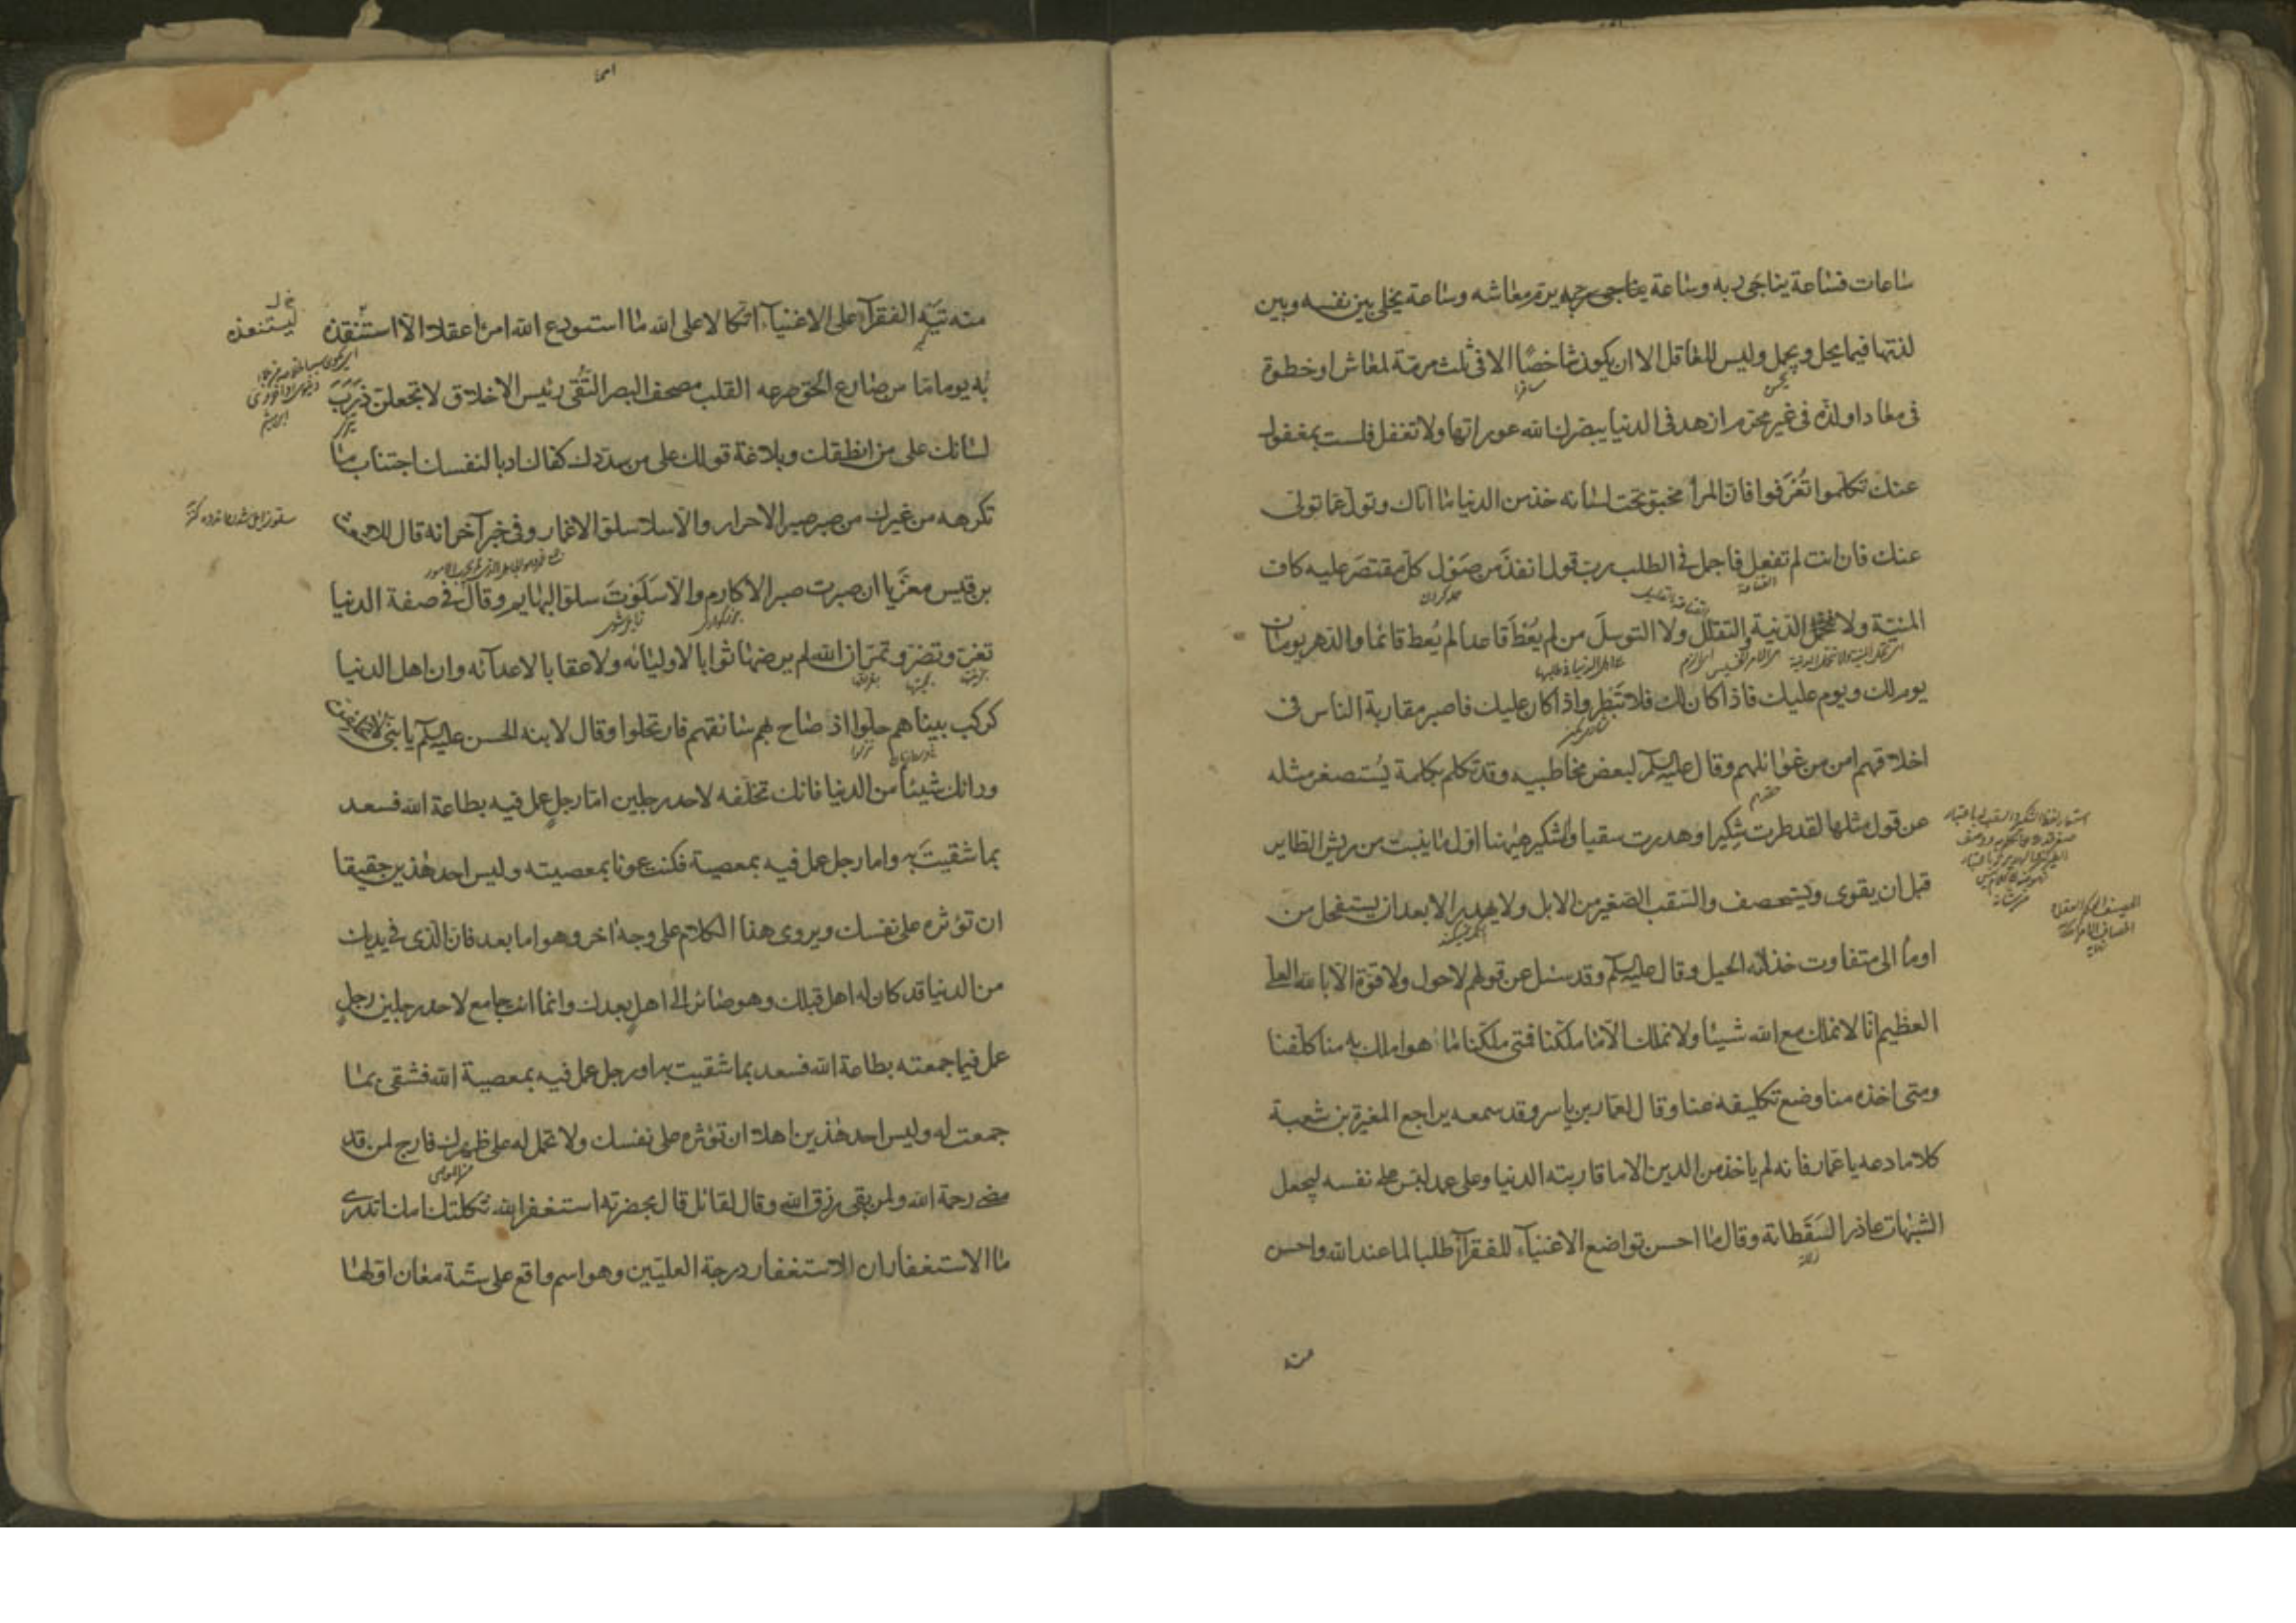 ساعات فساعة يناجى ربه وساعة يرم معاشه وساعة يخلى بين نفسه وبين
لذتها فيما يحل ويجمل وليس للعاقل الا ان يكون شاخصًا الا فى ثلث مرمة لمعاش او خطوة
فى معاد او لذه فى غير محرم ازهد فى الدنيا يبصرك الله عوراتها ولا تغفل فلست بمغفول
عنك تكلموا تُعرَفوا فان المرأ مخبو تحت لسانه خذ من الدنيا ما اتاك وتول عما تولى
عنك فان انت لم تفعل فاجمل فى الطلب رب قول انفذ من صَوْل كل مقتصَر عليه كاف
المنية ولا الدنية والتقلل ولا التوسل من لم يُعْطَ قاعدا لم يُعط قائما والدهر يومان
يوم لك ويوم عليك فاذا كان لك فلا تَبْطر واذا كان عليك فاصبر مقاربة الناس فى
اخلاقهم امن من غوائلهم وقال عليه السلم لبعض مخاطبيه وقد تكلم بكلمة يُستصغر مثله
عن قول مثلها لقد طرت شكيرا وهدرت سقبا والشكير هيهنا اول ما ينبت من ريش الطاير
قبل ان يقوى ويستحصف والسقب الصغير من الابل ولا يهدر الا بعد ان يستفحل من
اومأ الى متفاوت خذلته الحيل وقال عليه السلم وقد سئل عن قولهم لا حول ولا قوة الا بالله العلى
العظيم انا لا نملك مع الله شيئا ولا نملك الا ما ملكنا فمتى ملكنا ما هو املك به منا كلفنا
ومتى اخذه منا وضع تكليفه عنا وقال لعمار بن ياسر وقد سمعه يراجع المغيرة بن شعبة
كلاما دعه يا عمار فانه لم ياخذ من الدين الا ما قاربته الدنيا وعلى عمد لبس على نفسه ليجعل
الشبهات عاذرا لسَقَطاته وقال ما احسن تواضع الاغنياء للفقرآء طلبا لما عند الله واحسن
منه
منه تيه الفقرآء على الاغنياء اتكالا على الله ما استودع الله امرأ عقلا الا استنقذه
ليستنقذه
به يوما ما من صارع الحق صرعه القلب مصحف البصر التُّقى رئيس الاخلاق لا تجعلن ذَرَبَ
لسانك على من انطقك وبلاغة قولك على من سددك كفاك ادبا لنفسك اجتناب ما
تكرهه من غيرك من صبر صبر الاحرار والا سلا سلو الاغمار وفى خبر آخر انه قال للاشعث
بن قيس معزّيا ان صبرت صبر الاكارم والا سَلَوْتَ سلو البهايم وقال فى صفة الدنيا
تغر وتضر وتمر ان الله لم يرضها ثوابا لاوليائه ولا عقابا لاعدآئه وان اهل الدنيا
كركب بيناهم حلوا اذ صاح بهم سائقهم فارتحلوا وقال لابنه الحسن عليه السلم يا بنى لا تخلفن
ورائك شيئا من الدنيا فانك تخلفه لاحد رجلين اما رجل عمل فيه بطاعة الله فسعد
بما شقيتَ به واما رجل عمل فيه بمعصية فكنت عونا بمعصيته وليس احد هذين حقيقا
ان تؤثره على نفسك ويروى هذا الكلام على وجه اخر وهو اما بعد فان الذى فى يديك
من الدنيا قد كان له اهل قبلك وهو صائر الى اهلٍ بعدك وانما انت جامع لاحد رجلين رجلٍ
عمل فيما جمعته بطاعة الله فسعد بما شقيت به او رجل عمل فيه بمعصية الله فشقى بما
جمعت له وليس احد هذين اهلا ان تؤثره على نفسك ولا تحمل له على ظهرك فارج لمن قد
مضى رحمة الله ولمن بقى رزق الله وقال لقائل قال بحضرته استغفر الله ثكلتك امك اتدرى
ما الاستغفار ان الاستغفار درجة العليين وهو اسم واقع على ستة معان اولها